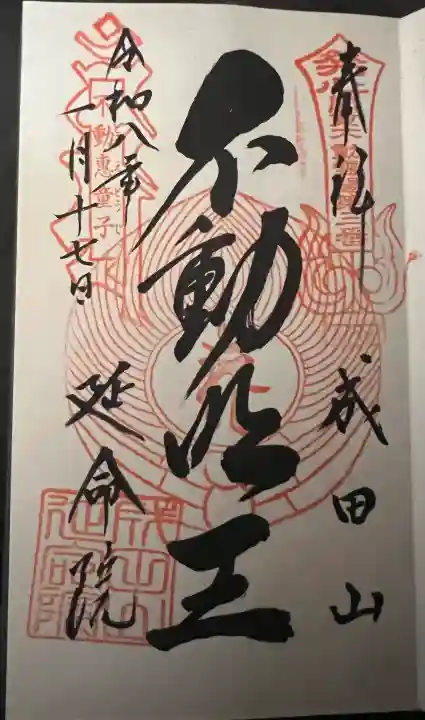 奉拝
成田山
不動明王
令和八年
一月十七日
延命院
不動恵童子